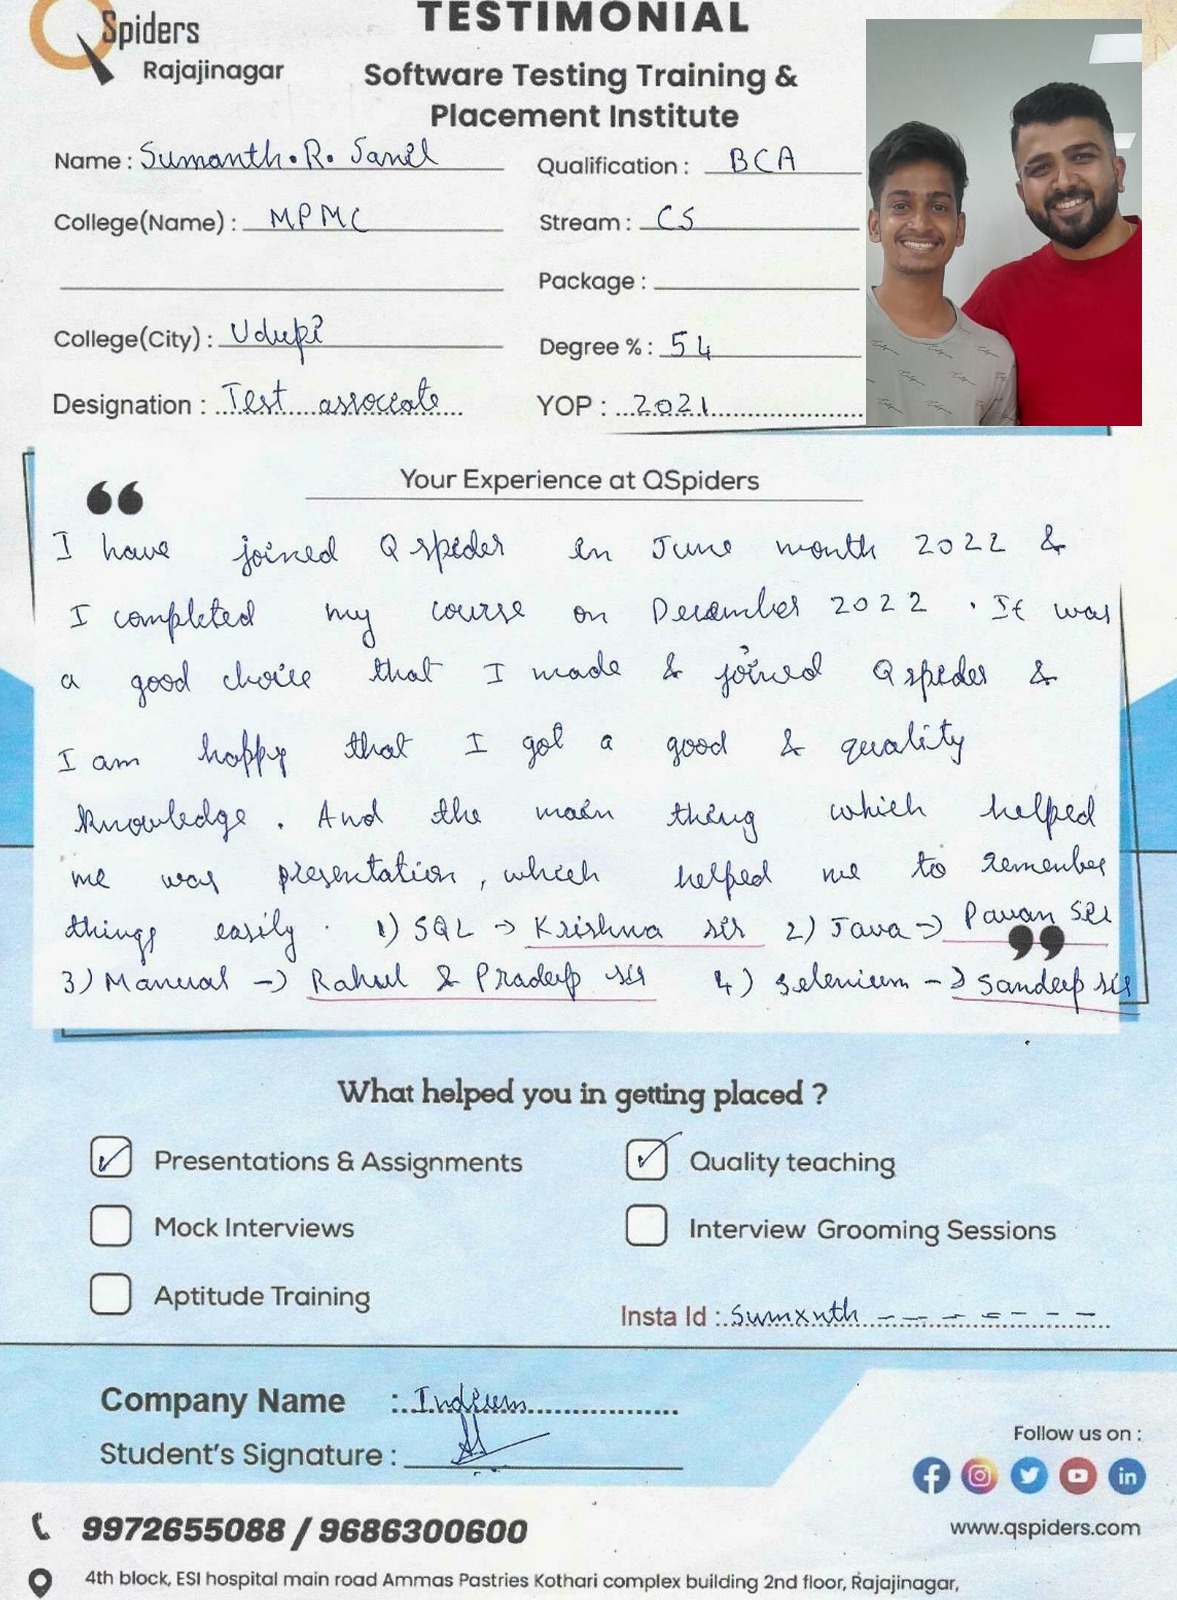 QSpiders
Rajajinagar
TESTIMONIAL
Software Testing Training &
Placement Institute
Name : Sumanth.R. Sanil
Qualification : BCA
College(Name) : MPMC
Stream : CS
Package :
College(City) : Udupi
Degree % : 54
Designation : Test associate
YOP : 2021
Your Experience at QSpiders
I have joined Q spider in June month 2022 &
I completed my course on December 2022 . It was
a good choice that I made & joined Q spider &
I am happy that I got a good & quality
knowledge . And the main thing which helped
me was presentation, which helped me to remember
things easily . 1) SQL -> Krishna sir 2) Java -> Pavan Sir
3) Manual -> Rahul & Pradeep sir 4) Selenium -> Sandeep sir
What helped you in getting placed ?
Presentations & Assignments
Quality teaching
Mock Interviews
Interview Grooming Sessions
Aptitude Training
Insta Id : Sumxnth _ _ _ _ _ _ _
Company Name : Indium
Student's Signature :
Follow us on :
9972655088 / 9686300600
www.qspiders.com
4th block, ESI hospital main road Ammas Pastries Kothari complex building 2nd floor, Rajajinagar,